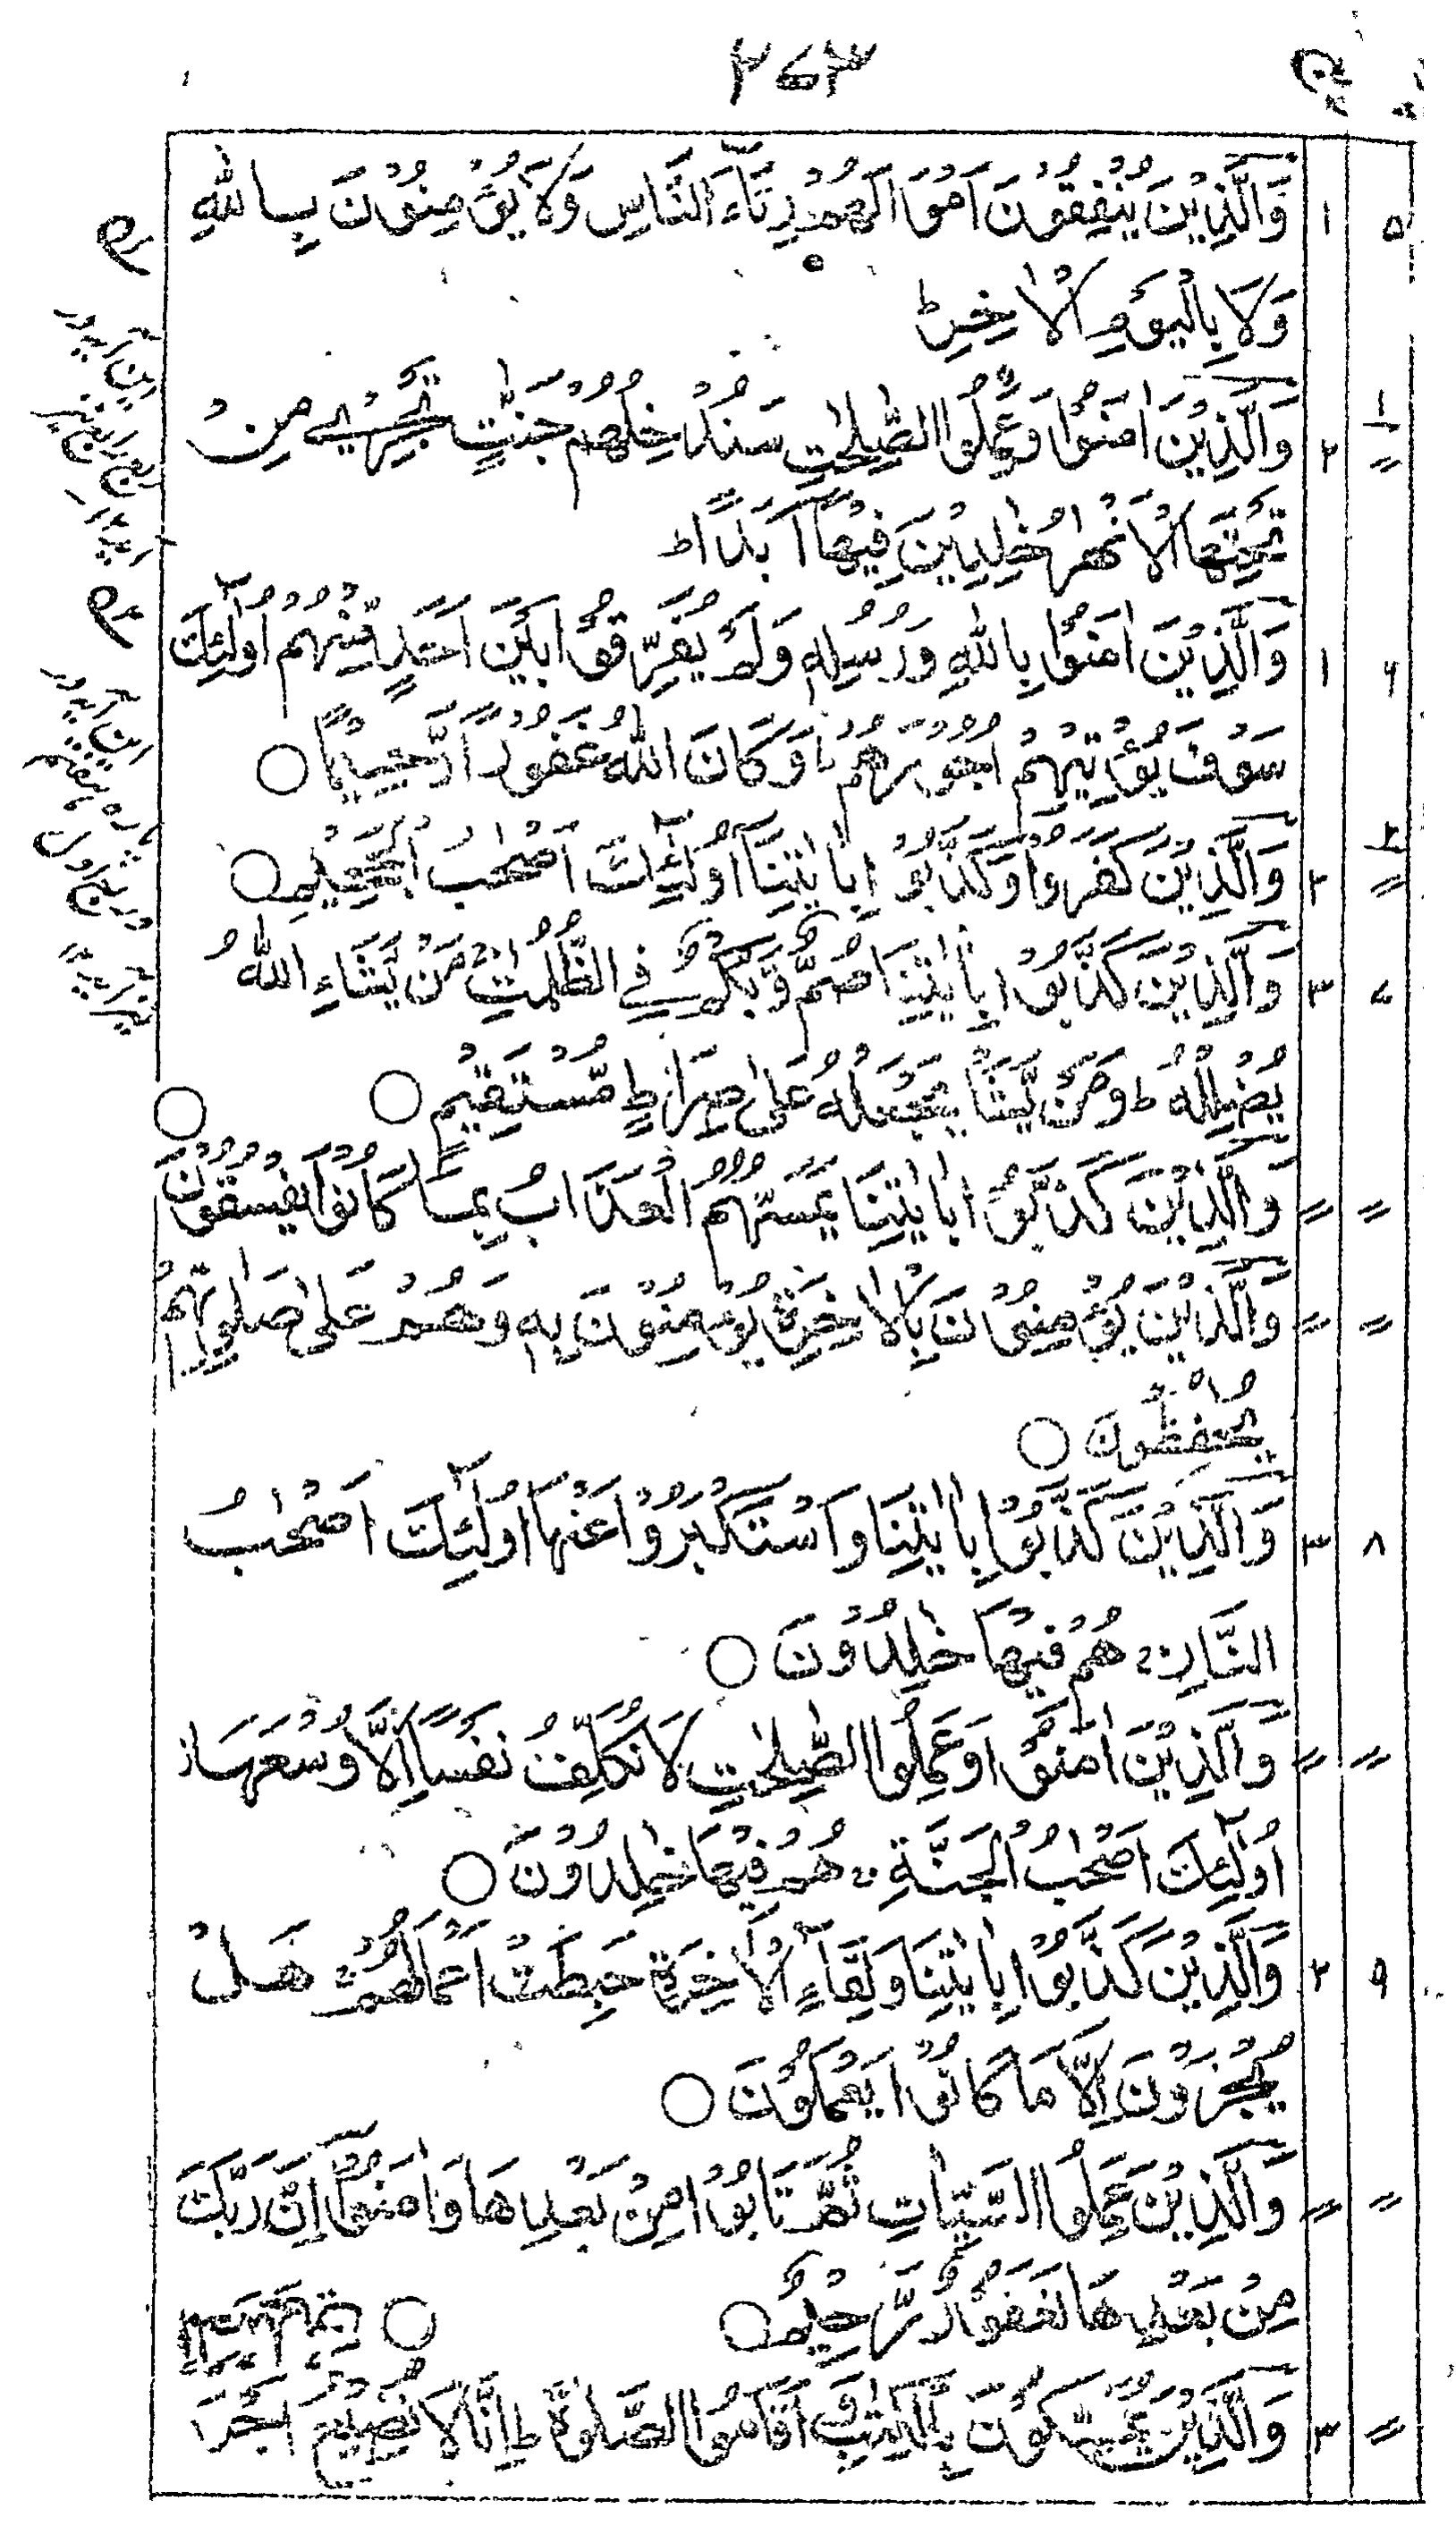 ۲۷۳
۵ ۱ وَالَّذِيْنَ يُنْفِقُوْنَ اَمْوَالَهُمْ رِئَآءَ النَّاسِ وَلَا يُؤْمِنُوْنَ بِاللّٰهِ
وَلَا بِالْيَوْمِ الْاٰخِرِ ط
۱ // ۲ وَالَّذِيْنَ اٰمَنُوْا وَعَمِلُوا الصّٰلِحٰتِ سَنُدْخِلُهُمْ جَنّٰتٍ تَجْرِيْ مِنْ
تَحْتِهَا الْاَنْهٰرُ خٰلِدِيْنَ فِيْهَآ اَبَدًا ط
۶ ۱ وَالَّذِيْنَ اٰمَنُوْا بِاللّٰهِ وَرُسُلِهٖ وَلَمْ يُفَرِّقُوْا بَيْنَ اَحَدٍ مِّنْهُمْ اُولٰٓئِكَ
سَوْفَ يُؤْتِيْهِمْ اُجُوْرَهُمْ ط وَكَانَ اللّٰهُ غَفُوْرًا رَّحِيْمًا ○
۲ // ۲ وَالَّذِيْنَ كَفَرُوْا وَكَذَّبُوْا بِاٰيٰتِنَآ اُولٰٓئِكَ اَصْحٰبُ الْجَحِيْمِ ○
۷ ۳ وَالَّذِيْنَ كَذَّبُوْا بِاٰيٰتِنَا صُمٌّ وَّبُكْمٌ فِي الظُّلُمٰتِ ط مَنْ يَّشَاءِ اللّٰهُ
يُضْلِلْهُ ط وَمَنْ يَّشَاْ يَجْعَلْهُ عَلٰى صِرَاطٍ مُّسْتَقِيْمٍ ○
// // وَالَّذِيْنَ كَذَّبُوْا بِاٰيٰتِنَا يَمَسُّهُمُ الْعَذَابُ بِمَا كَانُوْا يَفْسُقُوْنَ ○
// // وَالَّذِيْنَ يُؤْمِنُوْنَ بِالْاٰخِرَةِ يُؤْمِنُوْنَ بِهٖ وَهُمْ عَلٰى صَلَاتِهِمْ
يُحَافِظُوْنَ ○
۸ ۳ وَالَّذِيْنَ كَذَّبُوْا بِاٰيٰتِنَا وَاسْتَكْبَرُوْا عَنْهَآ اُولٰٓئِكَ اَصْحٰبُ
النَّارِ ج هُمْ فِيْهَا خٰلِدُوْنَ ○
// // وَالَّذِيْنَ اٰمَنُوْا وَعَمِلُوا الصّٰلِحٰتِ لَا نُكَلِّفُ نَفْسًا اِلَّا وُسْعَهَا ز
اُولٰٓئِكَ اَصْحٰبُ الْجَنَّةِ ج هُمْ فِيْهَا خٰلِدُوْنَ ○
۹ ۲ وَالَّذِيْنَ كَذَّبُوْا بِاٰيٰتِنَا وَلِقَآءِ الْاٰخِرَةِ حَبِطَتْ اَعْمَالُهُمْ ط هَلْ
يُجْزَوْنَ اِلَّا مَا كَانُوْا يَعْمَلُوْنَ ○
// // وَالَّذِيْنَ عَمِلُوا السَّيِّاٰتِ ثُمَّ تَابُوْا مِنْ بَعْدِهَا وَاٰمَنُوْٓا اِنَّ رَبَّكَ
مِنْ بَعْدِهَا لَغَفُوْرٌ رَّحِيْمٌ ○ ○
// ۳ وَالَّذِيْنَ يُمَسِّكُوْنَ بِالْكِتٰبِ وَاَقَامُوا الصَّلٰوةَ ط اِنَّا لَا نُضِيْعُ اَجْرَ